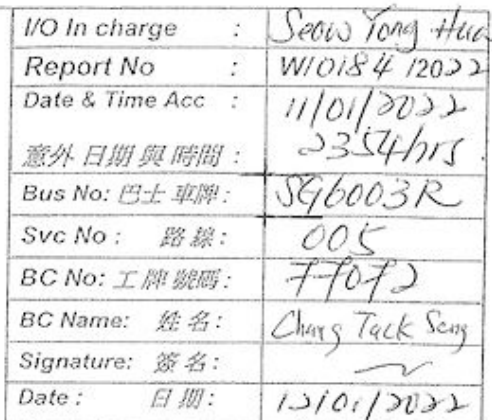 I/O In charge : Seow Yong Hua
Report No : W10184 12022
Date & Time Acc : 11/01/2022
意外 日期 與 時間 : 2354hrs
Bus No: 巴士 車牌 : SG6003R
Svc No : 路 線 : 005
BC No: 工 牌 號碼 : 77072
BC Name: 姓 名 : Chung Tuck Seng
Signature: 簽 名 :
Date : 日 期 : 12/01/2022